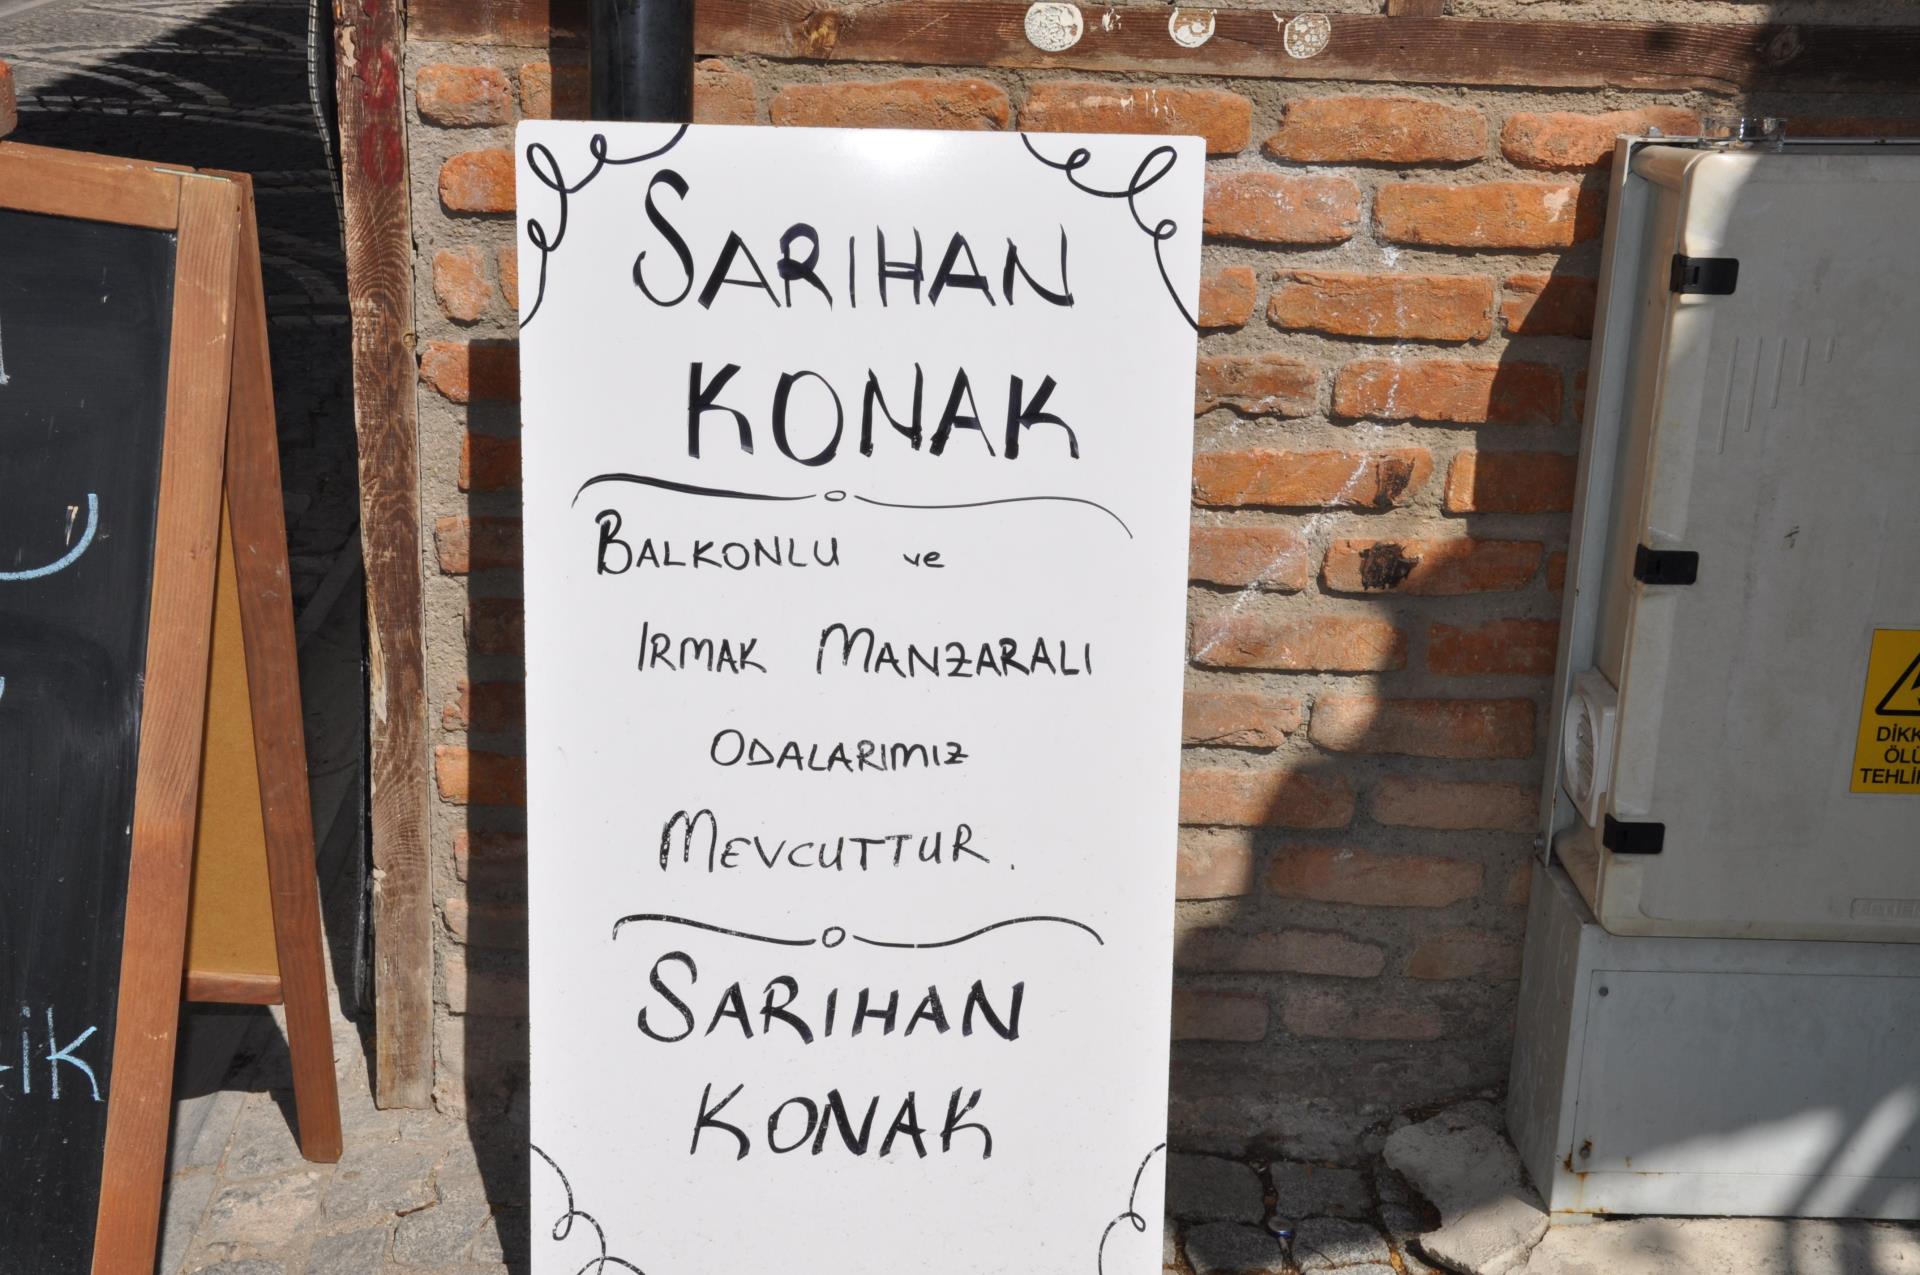 SARIHAN
KONAK
BALKONLU ve
IRMAK MANZARALI
ODALARIMIZ
MEVCUTTUR.
SARIHAN
KONAK